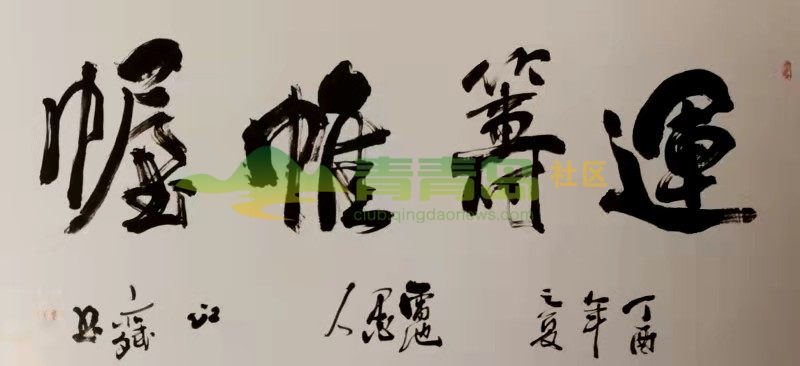 運籌帷幄
丁酉年之夏
青青岛社区
club.qingdaonews.com